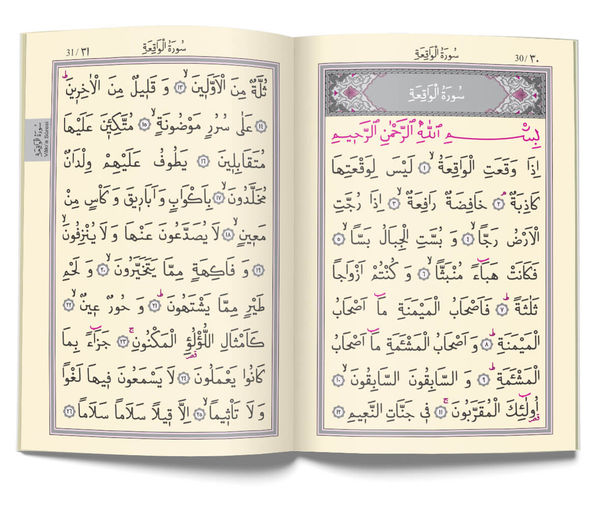 سُورَةُ الْوَاقِعَةِ
30/٣٠
سُورَةُ الْوَاقِعَةِ
بِسْــــمِ اللّٰهِ الرَّحْمٰنِ الرَّحٖيمِ
اِذَا وَقَعَتِ الْوَاقِعَةُۙ ﴿١﴾ لَيْسَ لِوَقْعَتِهَا
كَاذِبَةٌۢ ﴿٢﴾ خَافِضَةٌ رَافِعَةٌۙ ﴿٣﴾ اِذَا رُجَّتِ
الْاَرْضُ رَجًّاۙ ﴿٤﴾ وَ بُسَّتِ الْجِبَالُ بَسًّاۙ ﴿٥﴾
فَكَانَتْ هَبَٓاءً مُنْبَثًّاۙ ﴿٦﴾ وَ كُنْتُمْ اَزْوَاجًا
ثَلٰثَةًؕ ﴿٧﴾ فَاَصْحَابُ الْمَيْمَنَةِ مَٓا اَصْحَابُ
الْمَيْمَنَةِؕ ﴿٨﴾ وَ اَصْحَابُ الْمَشْـَٔمَةِ مَٓا اَصْحَابُ
الْمَشْـَٔمَةِؕ ﴿٩﴾ وَ السَّابِقُونَ السَّابِقُونَۙ ﴿١٠﴾
اُو۬لٰٓئِكَ الْمُقَرَّبُونَۚ ﴿١١﴾ فٖى جَنَّاتِ النَّعٖيمِ ﴿١٢﴾
سُورَةُ الْوَاقِعَةِ
31/٣١
سُورَةُ الْوَاقِعَةِ
Vâkı'a Sûresi
ثُلَّةٌ مِنَ الْاَوَّلٖينَۙ ﴿١٣﴾ وَ قَلٖيلٌ مِنَ الْاٰخِرٖينَؕ
﴿١٤﴾ عَلٰى سُرُرٍ مَوْضُونَةٍۙ ﴿١٥﴾ مُتَّكِـٖٔينَ عَلَيْهَا
مُتَقَابِلٖينَ ﴿١٦﴾ يَطُوفُ عَلَيْهِمْ وِلْدَانٌ
مُخَلَّدُونَۙ ﴿١٧﴾ بِاَكْوَابٍ وَ اَبَارٖيقَ وَ كَاْسٍ مِنْ
مَعٖينٍۙ ﴿١٨﴾ لَا يُصَدَّعُونَ عَنْهَا وَ لَا يُنْزِفُونَۙ
﴿١٩﴾ وَ فَاكِهَةٍ مِمَّا يَتَخَيَّرُونَۙ ﴿٢٠﴾ وَ لَحْمِ
طَيْرٍ مِمَّا يَشْتَهُونَؕ ﴿٢١﴾ وَ حُورٌ عٖينٌۙ ﴿٢٢﴾
كَاَمْثَالِ اللُّؤْلُؤِ الْمَكْنُونِۚ ﴿٢٣﴾ جَزَٓاءً بِمَا
كَانُوا يَعْمَلُونَ ﴿٢٤﴾ لَا يَسْمَعُونَ فٖيهَا لَغْوًا
وَ لَا تَاْثٖيمًاۙ ﴿٢٥﴾ اِلَّا قٖيلًا سَلَامًا سَلَامًا ﴿٢٦﴾